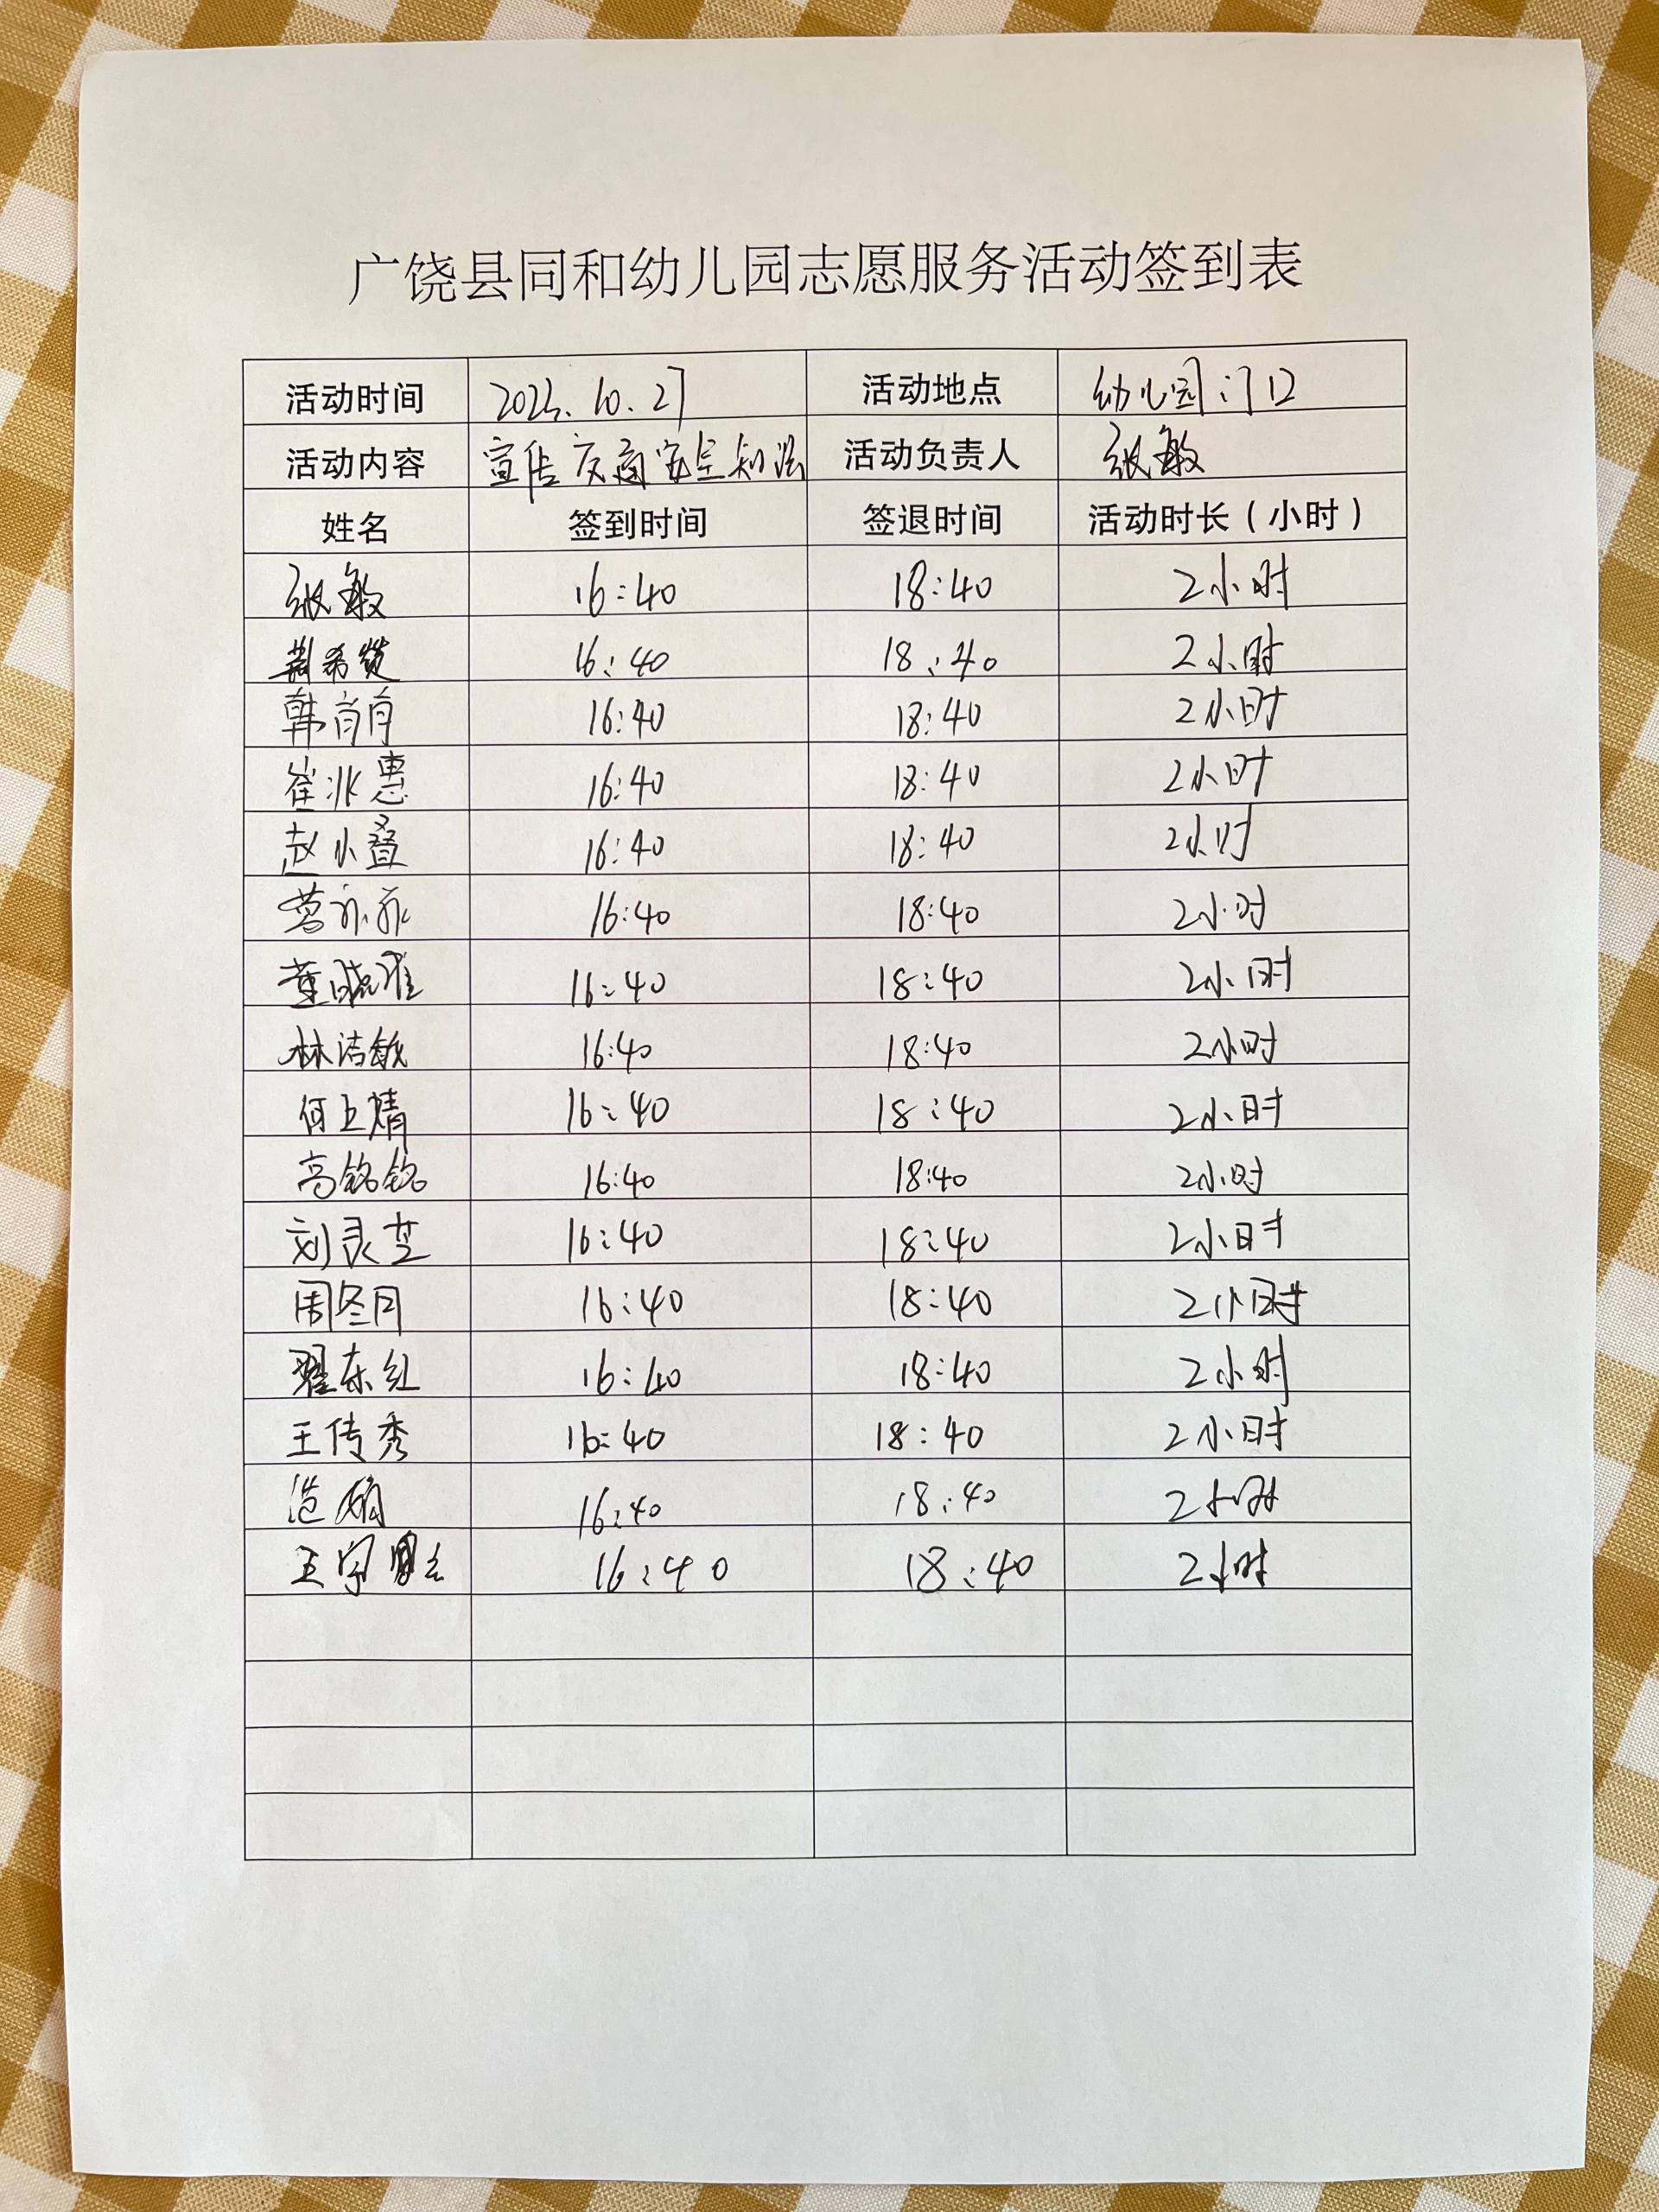 广饶县同和幼儿园志愿服务活动签到表
活动时间 活动地点 幼儿园门口
活动内容 宣传交通安全知识 活动负责人 张敏
姓名 签到时间 签退时间 活动时长(小时)
张敏 16:40 18:40 2小时
16:40 18:40 2小时
韩肖肖 16:40 18:40 2小时
崔兆惠 16:40 18:40 2小时
赵小叠 16:40 18:40 2小时
16:40 18:40 2小时
董晓雅 16:40 18:40 2小时
林洁敏 16:40 18:40 2小时
何上婧 16:40 18:40 2小时
高铭铭 16:40 18:40 2小时
刘灵芝 16:40 18:40 2小时
周冬月 16:40 18:40 2小时
翟东红 16:40 18:40 2小时
王传秀 16:40 18:40 2小时
范娟 16:40 18:40 2小时
王宇 16:40 18:40 2小时